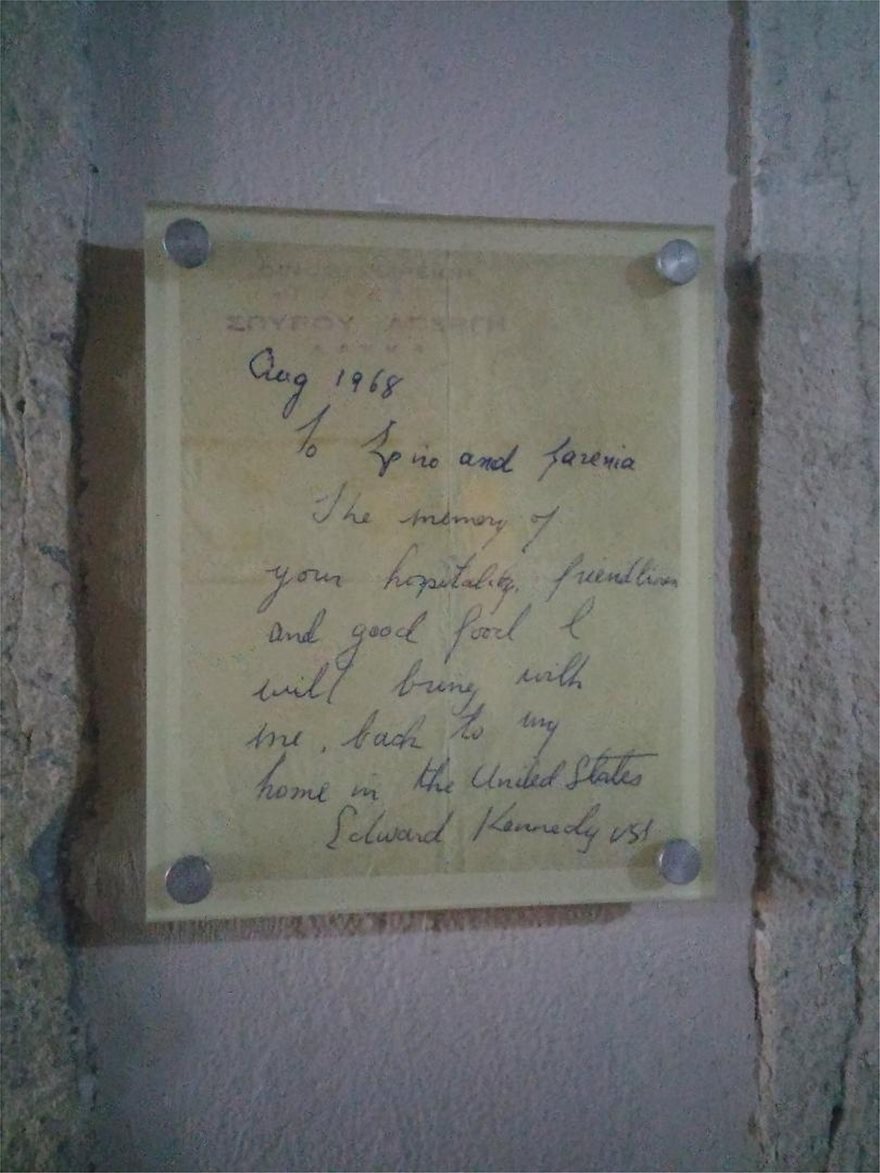 ΣΠΥΡΟΥ
Aug 1968
To Spiro and
The memory of
your hospitality, friendliness
and good food I
will bring with
me, back to my
home in the United States
Edward Kennedy